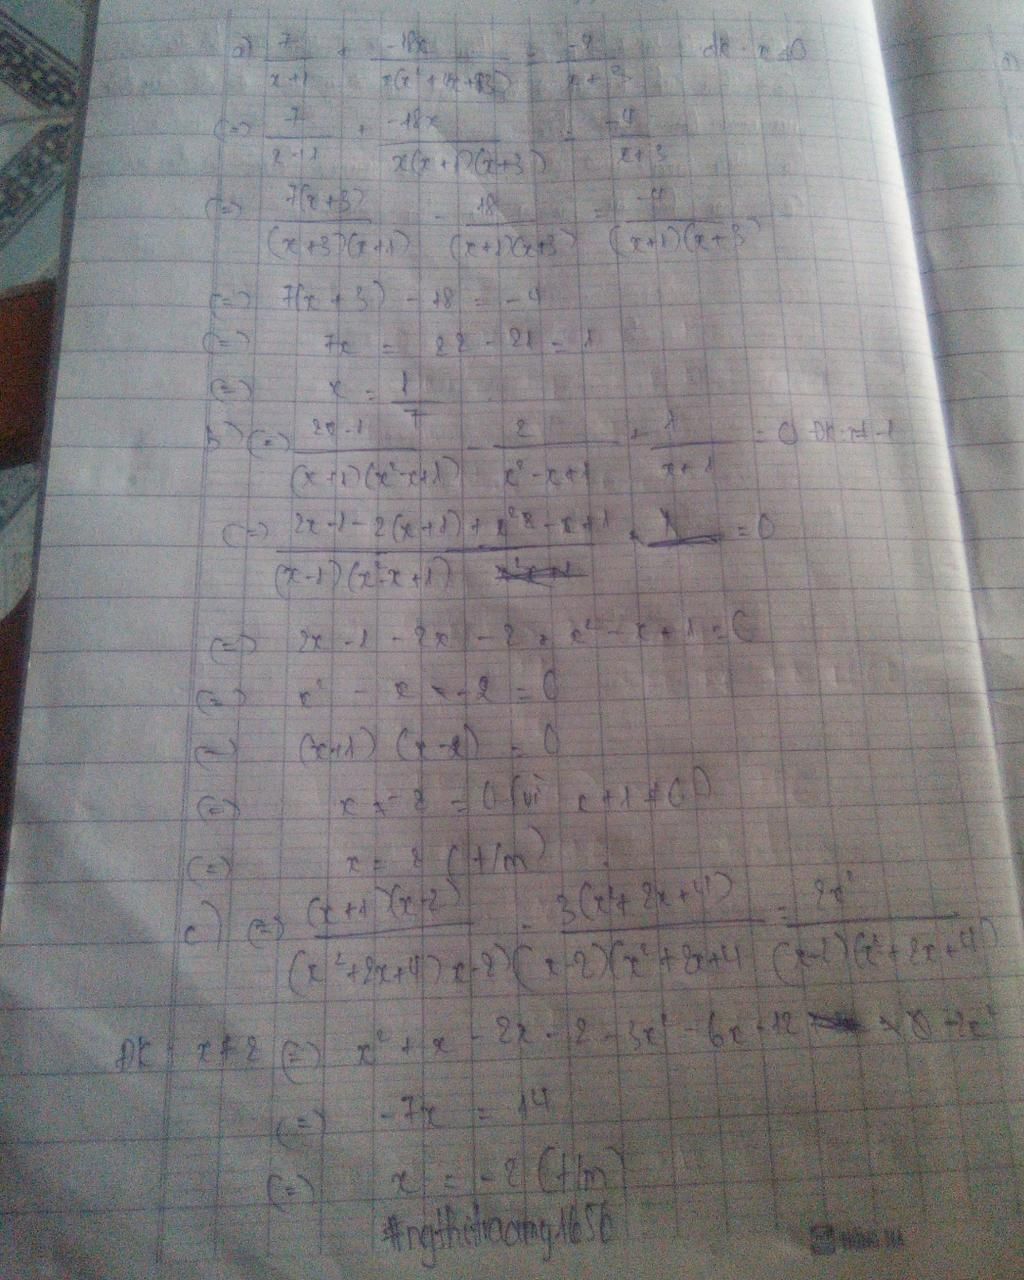 a) 7/(x+1) + -18x/(x(x²+4x+3)) = -4/(x+3) đk: x≠0
(=) 7/(x+1) + -18x/(x(x+1)(x+3)) = -4/(x+3)
(=) 7(x+3)/((x+3)(x+1)) - 18/((x+1)(x+3)) = -4/((x+1)(x+3))
(=) 7(x+3) - 18 = -4
(=) 7x = 22 - 21 = 1
(=) x = 1/7
b) (=) (2x-1)/((x+1)(x²-x+1)) - 2/(x²-x+1) + 1/(x+1) = 0 ĐK: x≠-1
(=) (2x-1-2(x+1)+x²-x+1)/((x-1)(x²-x+1)) = 0
(=) 2x-1-2x-2+x²-x+1=0
(=) x² - x - 2 = 0
(=) (x+1)(x-2) = 0
(=) x - 2 = 0 (vì x+1≠0)
(=) x = 2 (t/m)
c) (=) (x+1)(x-2)/((x²+2x+4)(x-2)) - 3(x²+2x+4)/((x-2)(x²+2x+4)) = 2x²/((x-2)(x²+2x+4))
ĐK x≠2 (=) x² + x - 2x - 2 - 3x² - 6x - 12 -2x²
(=) -7x = 14
(=) x = -2 (t/m)